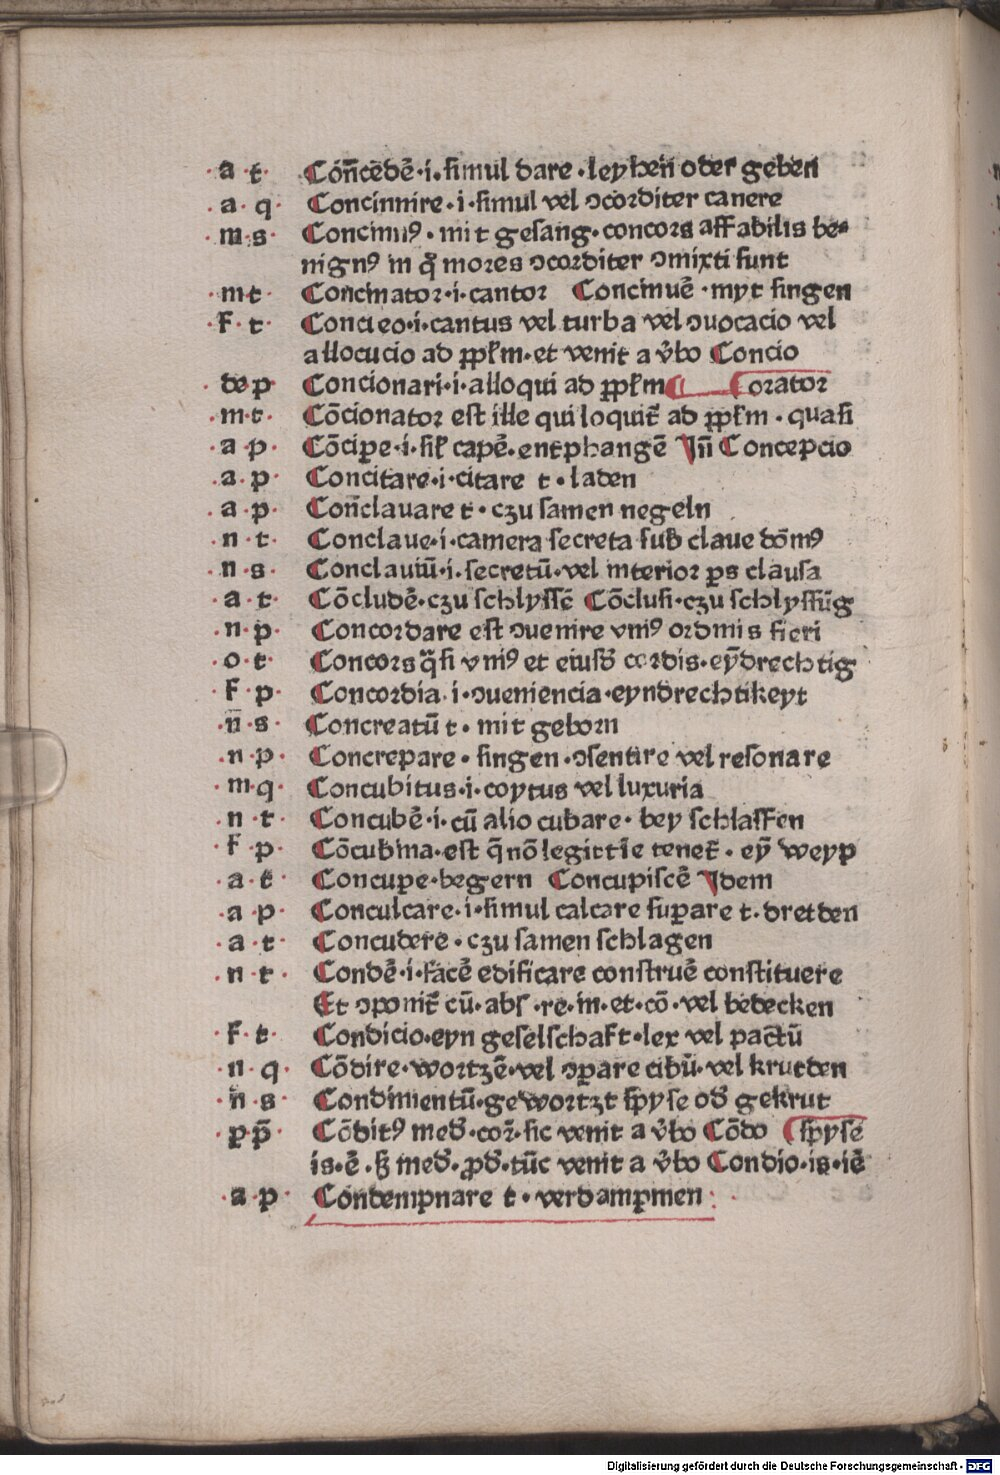 ·a·t· Con̄cēdē·i·simul dare·leyhen oder geben
·a·q· Concinnire·i·simul vel ɔcorditer canere
·m·s· Concinnꝰ·mit gesang·concors affabilis be⸗
nignꝰ in q̊ mores ɔcorditer ɔmixti sunt
·m·t· Concinator·i·cantor Concinuē·myt singen
·F·t· Concieo·i·cantus vel turba vel ɔuocacio vel
allocucio ad ꝓpl̄m·et venit a v̄bo Concio
·de·p· Concionari·i·alloqui ad ꝓpl̄m orator
·m·t· Cōcionator est ille qui loquit̄ ad ꝓpl̄m·quasi
·a·p· Cōciꝑe·i·sil̄ capē·entphangē Jn̄ Concepcio
·a·p· Concitare·i·citare t·laden
·a·p· Con̄clauare t·czu samen negeln
·n·t· Conclaue·i·camera secreta sub claue dōmꝰ
·n·s· Conclauiū·i·secretū·vel interior ꝑs clausa
·a·t· Cōcludē·czu schlyssē Cōclusi·czu schlyssūg
·n·p· Concordare est ɔuenire vniꝰ ordinis fieri
·o·t· Concors q̄si vniꝰ et eiusd̄ cordis·eȳdrechtig
·F·p· Concordia·i·ɔueniencia·eyndrechtikeyt
·n̄·s· Concreatū t·mit geborn
·n·p· Concrepare·singen·ɔsentire vel resonare
·m·q· Concubitus·i·coytus vel luxuria
·n·t· Concubē·i·cū alio cubare·bey schlaffen
·F·p· Cōcubina·est q̄ nō legittīe tenet̄·eȳ weyp
·a·t· Concuꝑe·begern Concupiscē Jdem
·a·p· Conculcare·i·simul calcare suꝑare t·dretden
·a·t· Concudere·czu samen schlagen
·n·t· Condē·i·facē edificare construē constituere
Et ɔponit̄ cū·abs·re·in·et·cō·vel bedecken
·F·t· Condicio·eyn geselschaft·lex vel pactū
·n·q· Cōdire·wortzē·vel ɔꝑare cibū·vel krutden
·n·s· Condimentū·gewortzt spyse od̄ gekrut
·ꝑ·p̄· Cōditꝰ med̄·cor̄·sic venit a v̄bo Cōdo spyse
is·ē·ẞ med̄·ꝓd̄·tūc venit a v̄bo Condio·is·iē
·a·p· Condempnare t·verdampmen
Digitalisierung gefördert durch die Deutsche Forschungsgemeinschaft · DFG